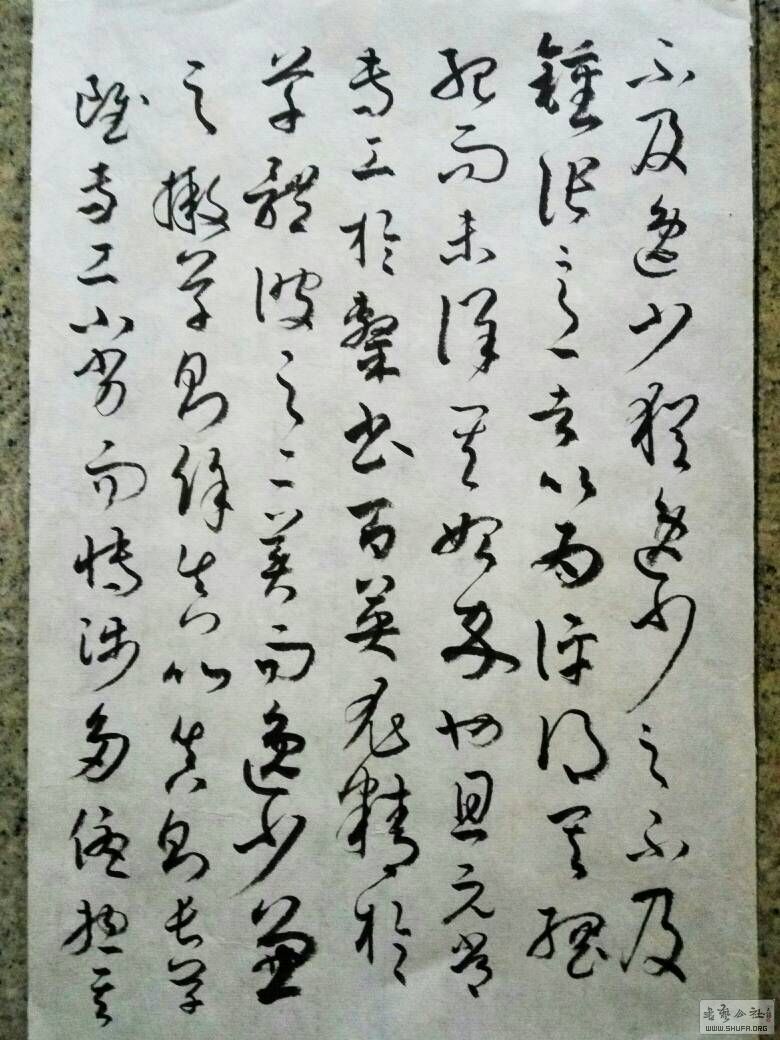 不及逸少猶逸少之不及
鍾張意者以為評得其綱
紀而未詳其始卒也且元常
專工於隸書百英尤精於
草體彼之二美而逸少兼
之擬草則餘真比真則長草
雖專工小劣而博涉多優揔其
書藝公社
WWW.SHUFA.ORG